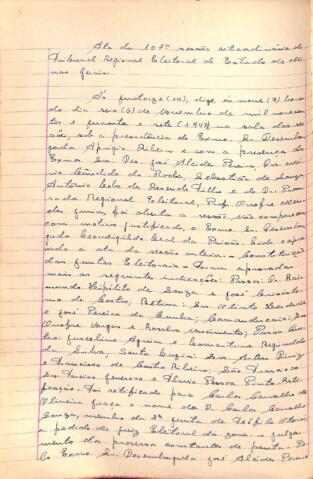 Ata da 107ª sessão extraordinária do
Tribunal Regional Eleitoral do Estado de Mi-
nas Gerais.
Às quatorze (14), digo, às nove (9) horas
do dia seis (6) de novembro de mil novecen-
tos e quarenta e sete (1.947) na sala das ses-
sões, sob a presidência do Exmo. Sr. Desembar-
gador Aprigio Ribeiro e com a presença dos
Exmos. Srs. Des. José Alcides Pereira, Drs.
Cândido da Rocha, Sebastião de Souza,
Antônio Lobo de Resende Filho e do Dr. Procu-
rador Regional Eleitoral, Prof. Onofre Men-
des Junior, foi aberta a sessão. Não compareceu
com motivo justificado, o Exmo. Sr. Desembar-
gador Leal da Paixão. Lida e apro-
vada a ata da sessão anterior. Constituição
das Juntas Eleitorais. Foram aprovadas
mais as seguintes indicações: Drs. Rai-
mundo Hipólito de Souza e José
de Castro; Betim: Srs. Alberto Andrade
e José Pereira da Cunha; Camanducaia: Srs.
Onofre Vargas e Nascimento; Passa Qua-
tro: Juscelino Aguiar e Reginaldo
da Cunha; Santa Luzia: Srs. Artur Diniz
e Francisco de Castro Ribeiro; São Francisco:
Srs. e Pessoa Pinto. Reti-
ficação. Foi retificado para Carlos Carvalho de
Oliveira o nome do Dr. Carlos Carvalho
Souza, membro da 2ª Junta de Teófilo Otoni,
a pedido do Juiz Eleitoral da zona. Julga-
mento dos processos constantes da pauta. Pe-
lo Exmo. Sr. Desembargador José Alcides Pereira